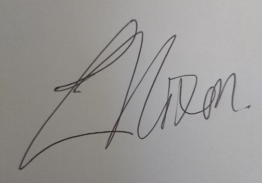 L Nixon.